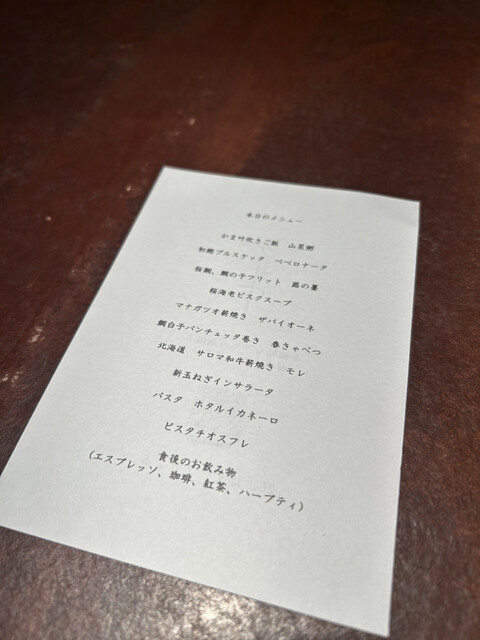 本日のメニュー
かま吽炊きご飯　山菜粥
初鰹ブルスケッタ　ペペロナータ
桜鯛、鯛の子フリット　蕗の薹
桜海老ビスクスープ
マナガツオ薪焼き　ザバイオーネ
鯛白子パンチェッタ巻き　春きゃべつ
北海道　サロマ和牛薪焼き　モレ
新玉ねぎインサラータ
パスタ　ホタルイカネーロ
ピスタチオスフレ
食後のお飲み物
（エスプレッソ、珈琲、紅茶、ハーブティ）